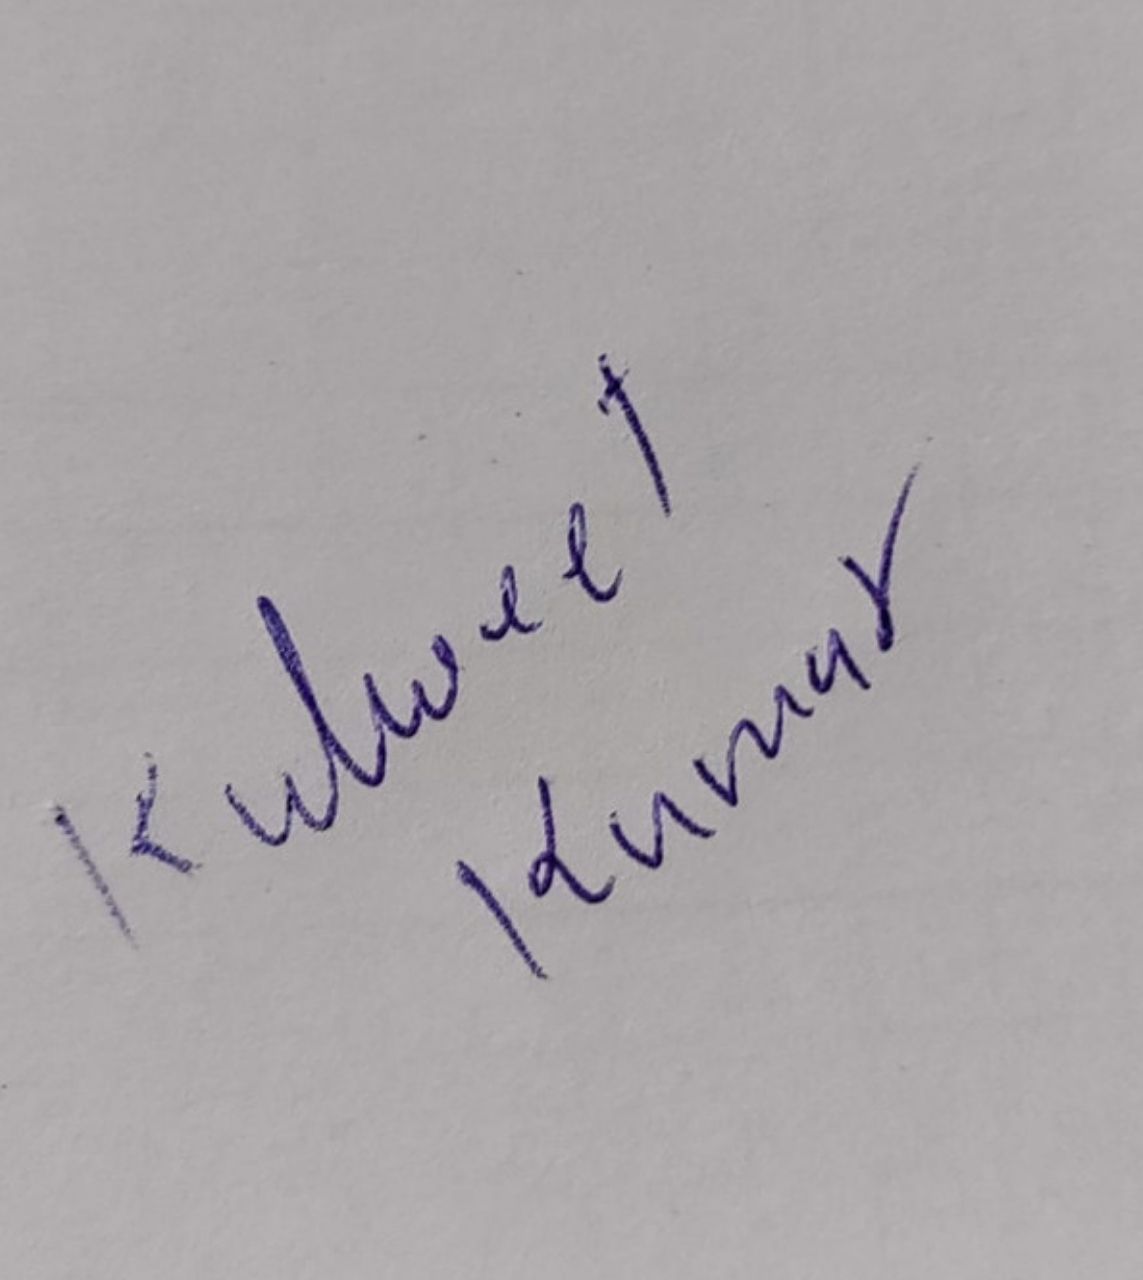 Kulweet
Kumar